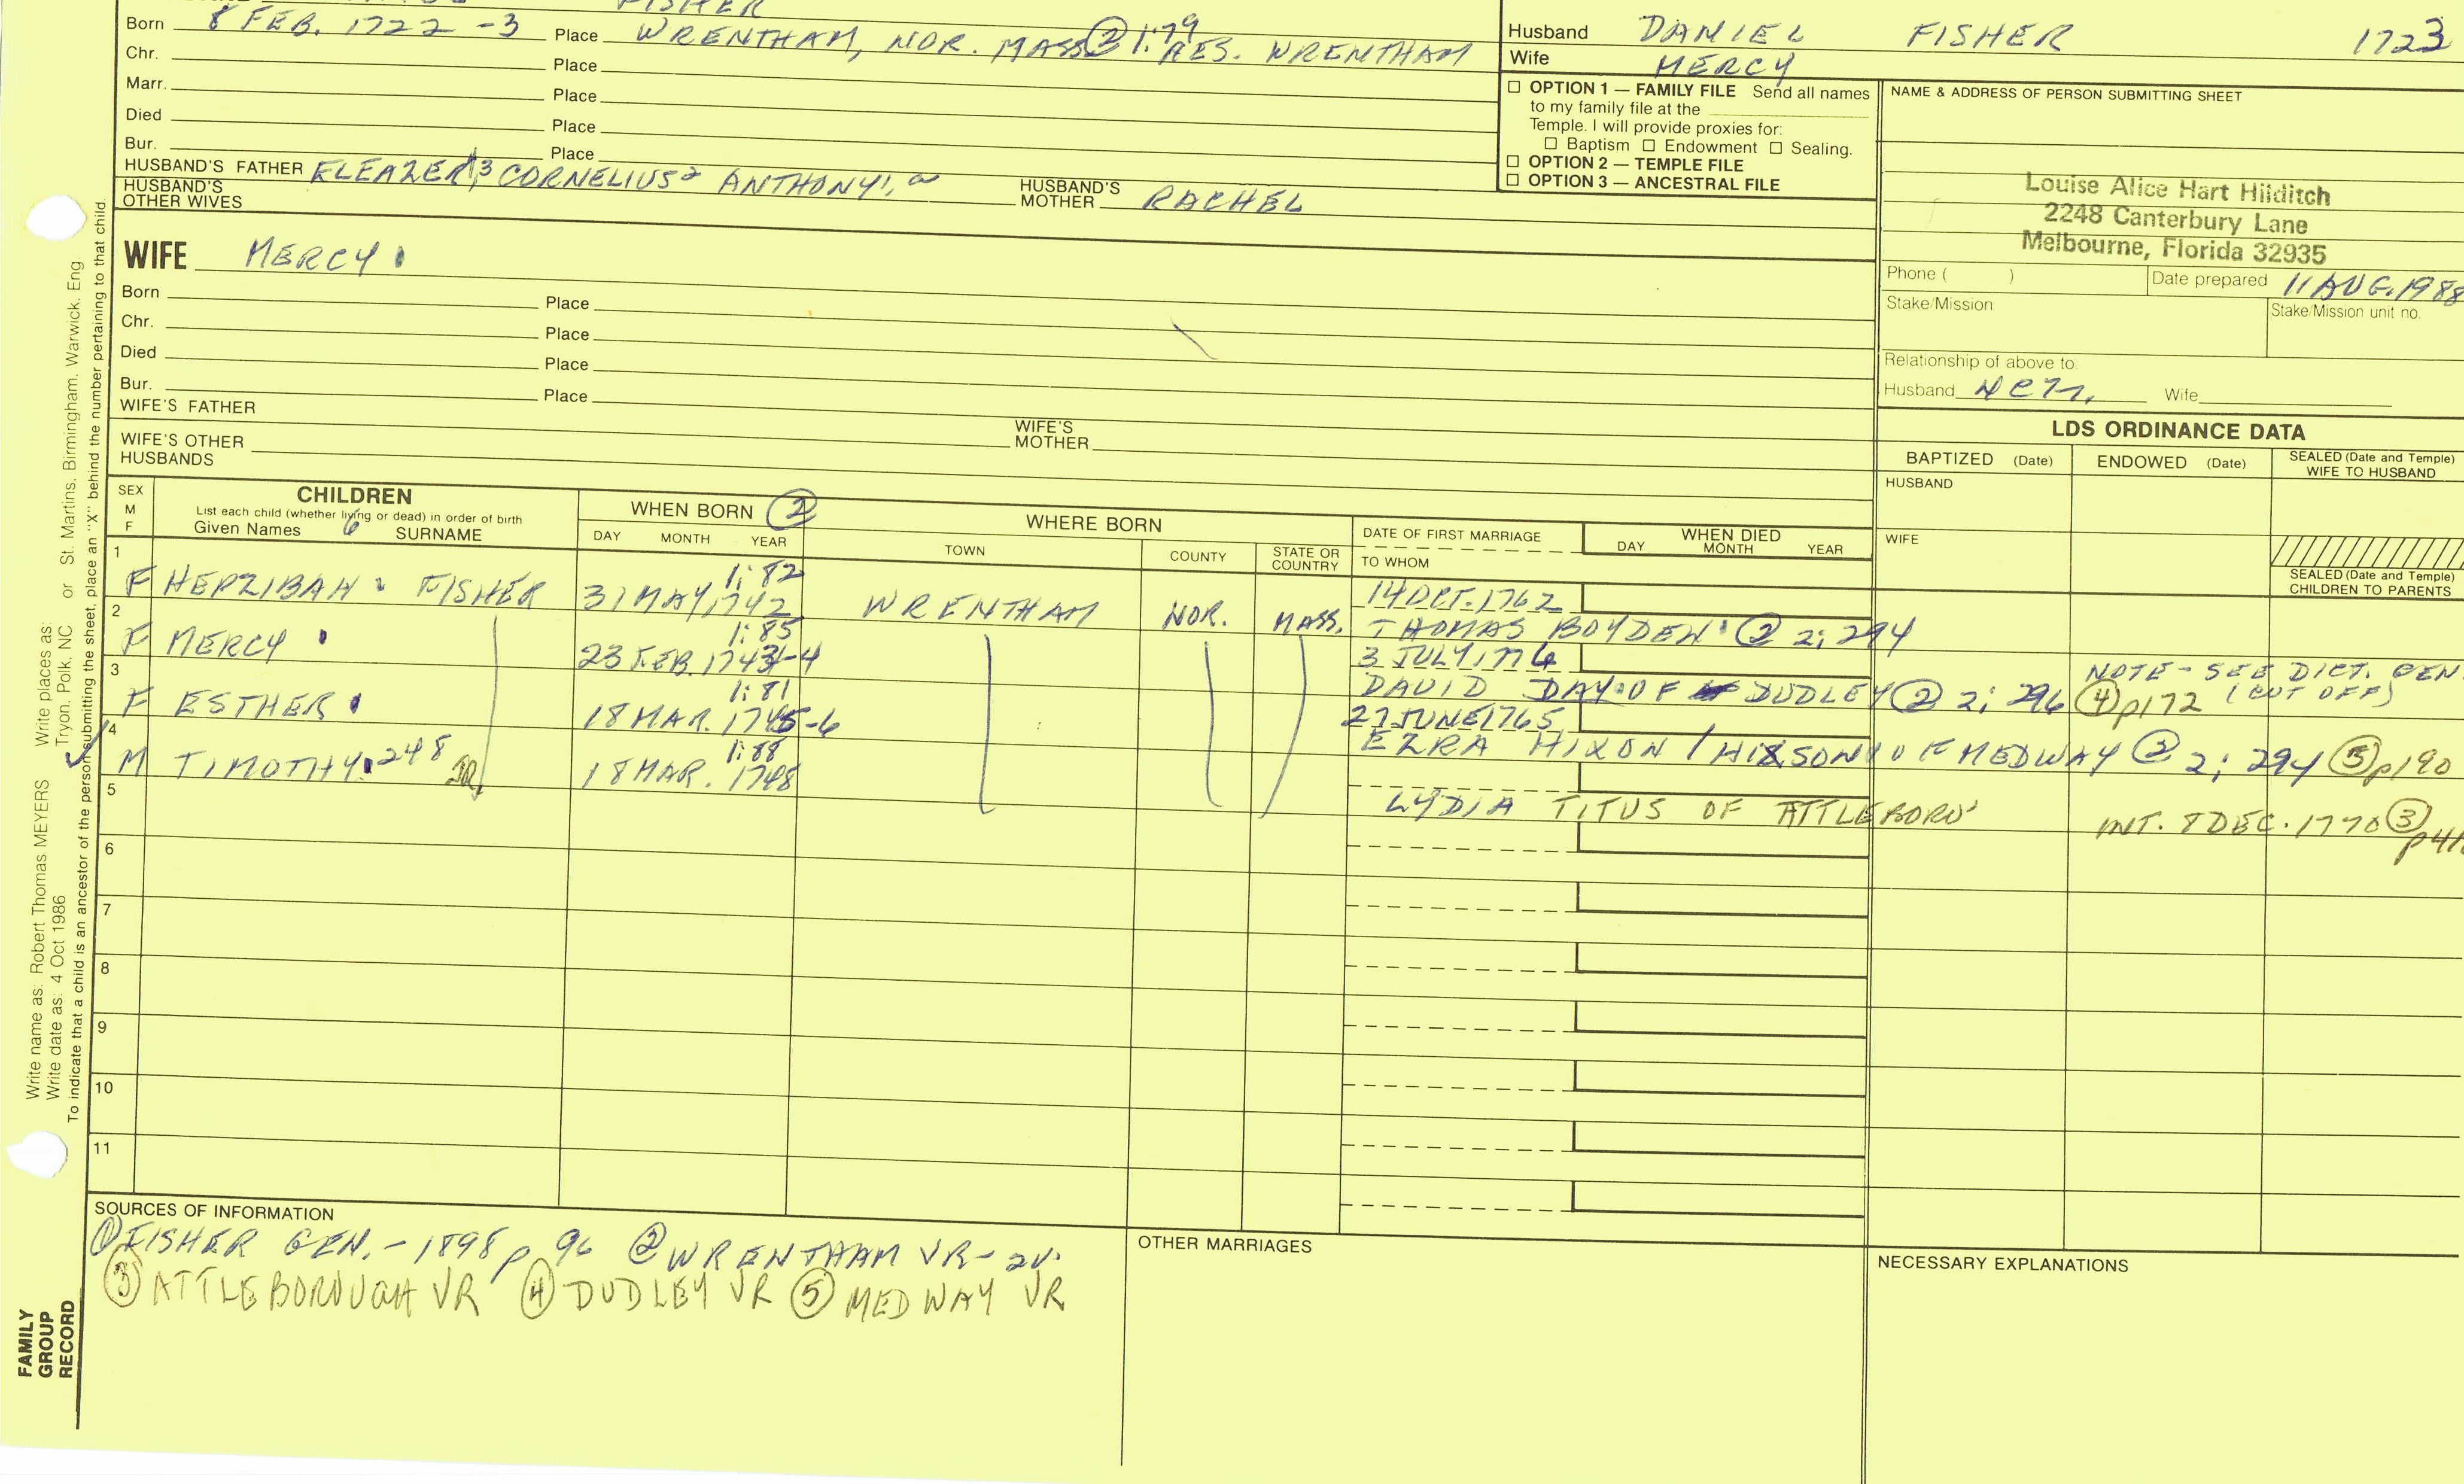 FISHER
Born 8 FEB. 1722-3 Place WRENTHAM, NOR. MASS ② 1:79 RES. WRENTHAM
Chr. Place
Marr. Place
Died Place
Bur. Place
HUSBAND'S FATHER ELEAZER 3 CORNELIUS 2 ANTHONY 1,
HUSBAND'S MOTHER RACHEL
HUSBAND'S OTHER WIVES
Husband DANIEL FISHER 1723
Wife MERCY
☐ OPTION 1 — FAMILY FILE Send all names
to my family file at the
Temple. I will provide proxies for:
☐ Baptism ☐ Endowment ☐ Sealing.
☐ OPTION 2 — TEMPLE FILE
☐ OPTION 3 — ANCESTRAL FILE
NAME & ADDRESS OF PERSON SUBMITTING SHEET
Louise Alice Hart Hilditch
2248 Canterbury Lane
Melbourne, Florida 32935
Phone ( ) Date prepared 11 AUG. 1988
Stake/Mission Stake/Mission unit no.
Relationship of above to
Husband Wife
WIFE MERCY
Born Place
Chr. Place
Died Place
Bur. Place
WIFE'S FATHER
WIFE'S MOTHER
WIFE'S OTHER HUSBANDS
LDS ORDINANCE DATA
BAPTIZED (Date) ENDOWED (Date) SEALED (Date and Temple) WIFE TO HUSBAND
HUSBAND
WIFE
SEALED (Date and Temple) CHILDREN TO PARENTS
SEX M F
CHILDREN
List each child (whether living or dead) in order of birth
Given Names 6 SURNAME
WHEN BORN ②
DAY MONTH YEAR
WHERE BORN
TOWN COUNTY STATE OR COUNTRY
DATE OF FIRST MARRIAGE
TO WHOM
WHEN DIED
DAY MONTH YEAR
1 1:82
F HEPZIBAH FISHER 31 MAY 1742 WRENTHAM NOR. MASS. 14 OCT. 1762
THOMAS BOYDEN ② 2; 294
2 1:85
F MERCY 23 FEB. 1743-4 3 JULY 1774
DAVID DAY OF DUDLEY ② 2; 296 ④ p172
NOTE - SEE DICT. GEN.
(CUT OFF)
3 1:81
F ESTHER 18 MAR. 1745-6 27 JUNE 1765
EZRA HIXON / HIXSON OF MEDWAY ② 2; 294 ⑤ p190
4 1:88
M TIMOTHY 248 JR. 18 MAR. 1748
LYDIA TITUS OF ATTLEBORO' INT. 8 DEC. 1770 ③
5
6
7
8
9
10
11
SOURCES OF INFORMATION
① FISHER GEN. - 1898 p 96 ② WRENTHAM VR - 2V.
③ ATTLEBOROUGH VR ④ DUDLEY VR ⑤ MEDWAY VR
OTHER MARRIAGES
NECESSARY EXPLANATIONS
FAMILY
GROUP
RECORD
Write name as: Robert Thomas MEYERS Write places as: St. Martins, Birmingham, Warwick, Eng
Write date as: 4 Oct 1986 Tryon, Polk, NC or
To indicate that a child is an ancestor of the person submitting the sheet, place an "X" behind the number pertaining to that child.